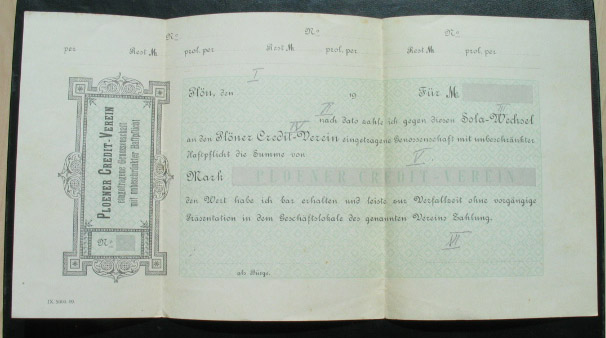 Nº Nº Nº
per Rest M. prol. per Rest M. prol. per Rest M. prol. per
PLOENER CREDIT-VEREIN
eingetragene Genossenschaft
mit unbeschränkter Haftpflicht
Nº
I
Plön, den 19 Für M
II III
nach dato zahle ich gegen diesen Sola-Wechsel
IV
an den Plöner Credit-Verein eingetragene Genossenschaft mit unbeschränkter
Haftpflicht die Summe von V
Mark PLOENER CREDIT-VEREIN
den Wert habe ich bar erhalten und leiste zur Verfallzeit ohne vorgängige
Präsentation in dem Geschäftslokale des genannten Vereins Zahlung.
als Bürge.